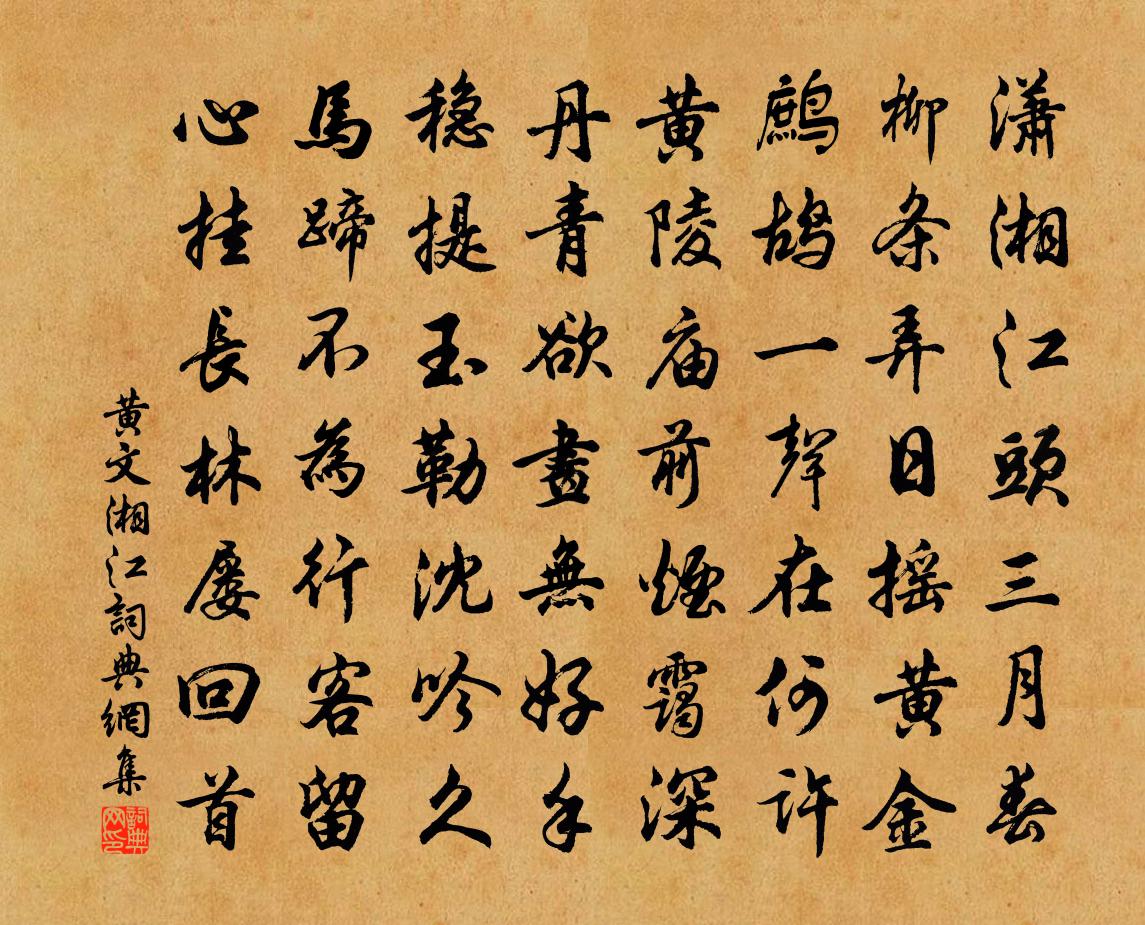 瀟湘江頭三月春
柳条弄日摇黄金
鷓鴣一聲在何許
黄陵庙前煙靄深
丹青欲畫無好手
稳提玉勒沈吟久
馬蹄不為行客留
心挂長林屡回首
黄文湘江詞典網集
詞典网印